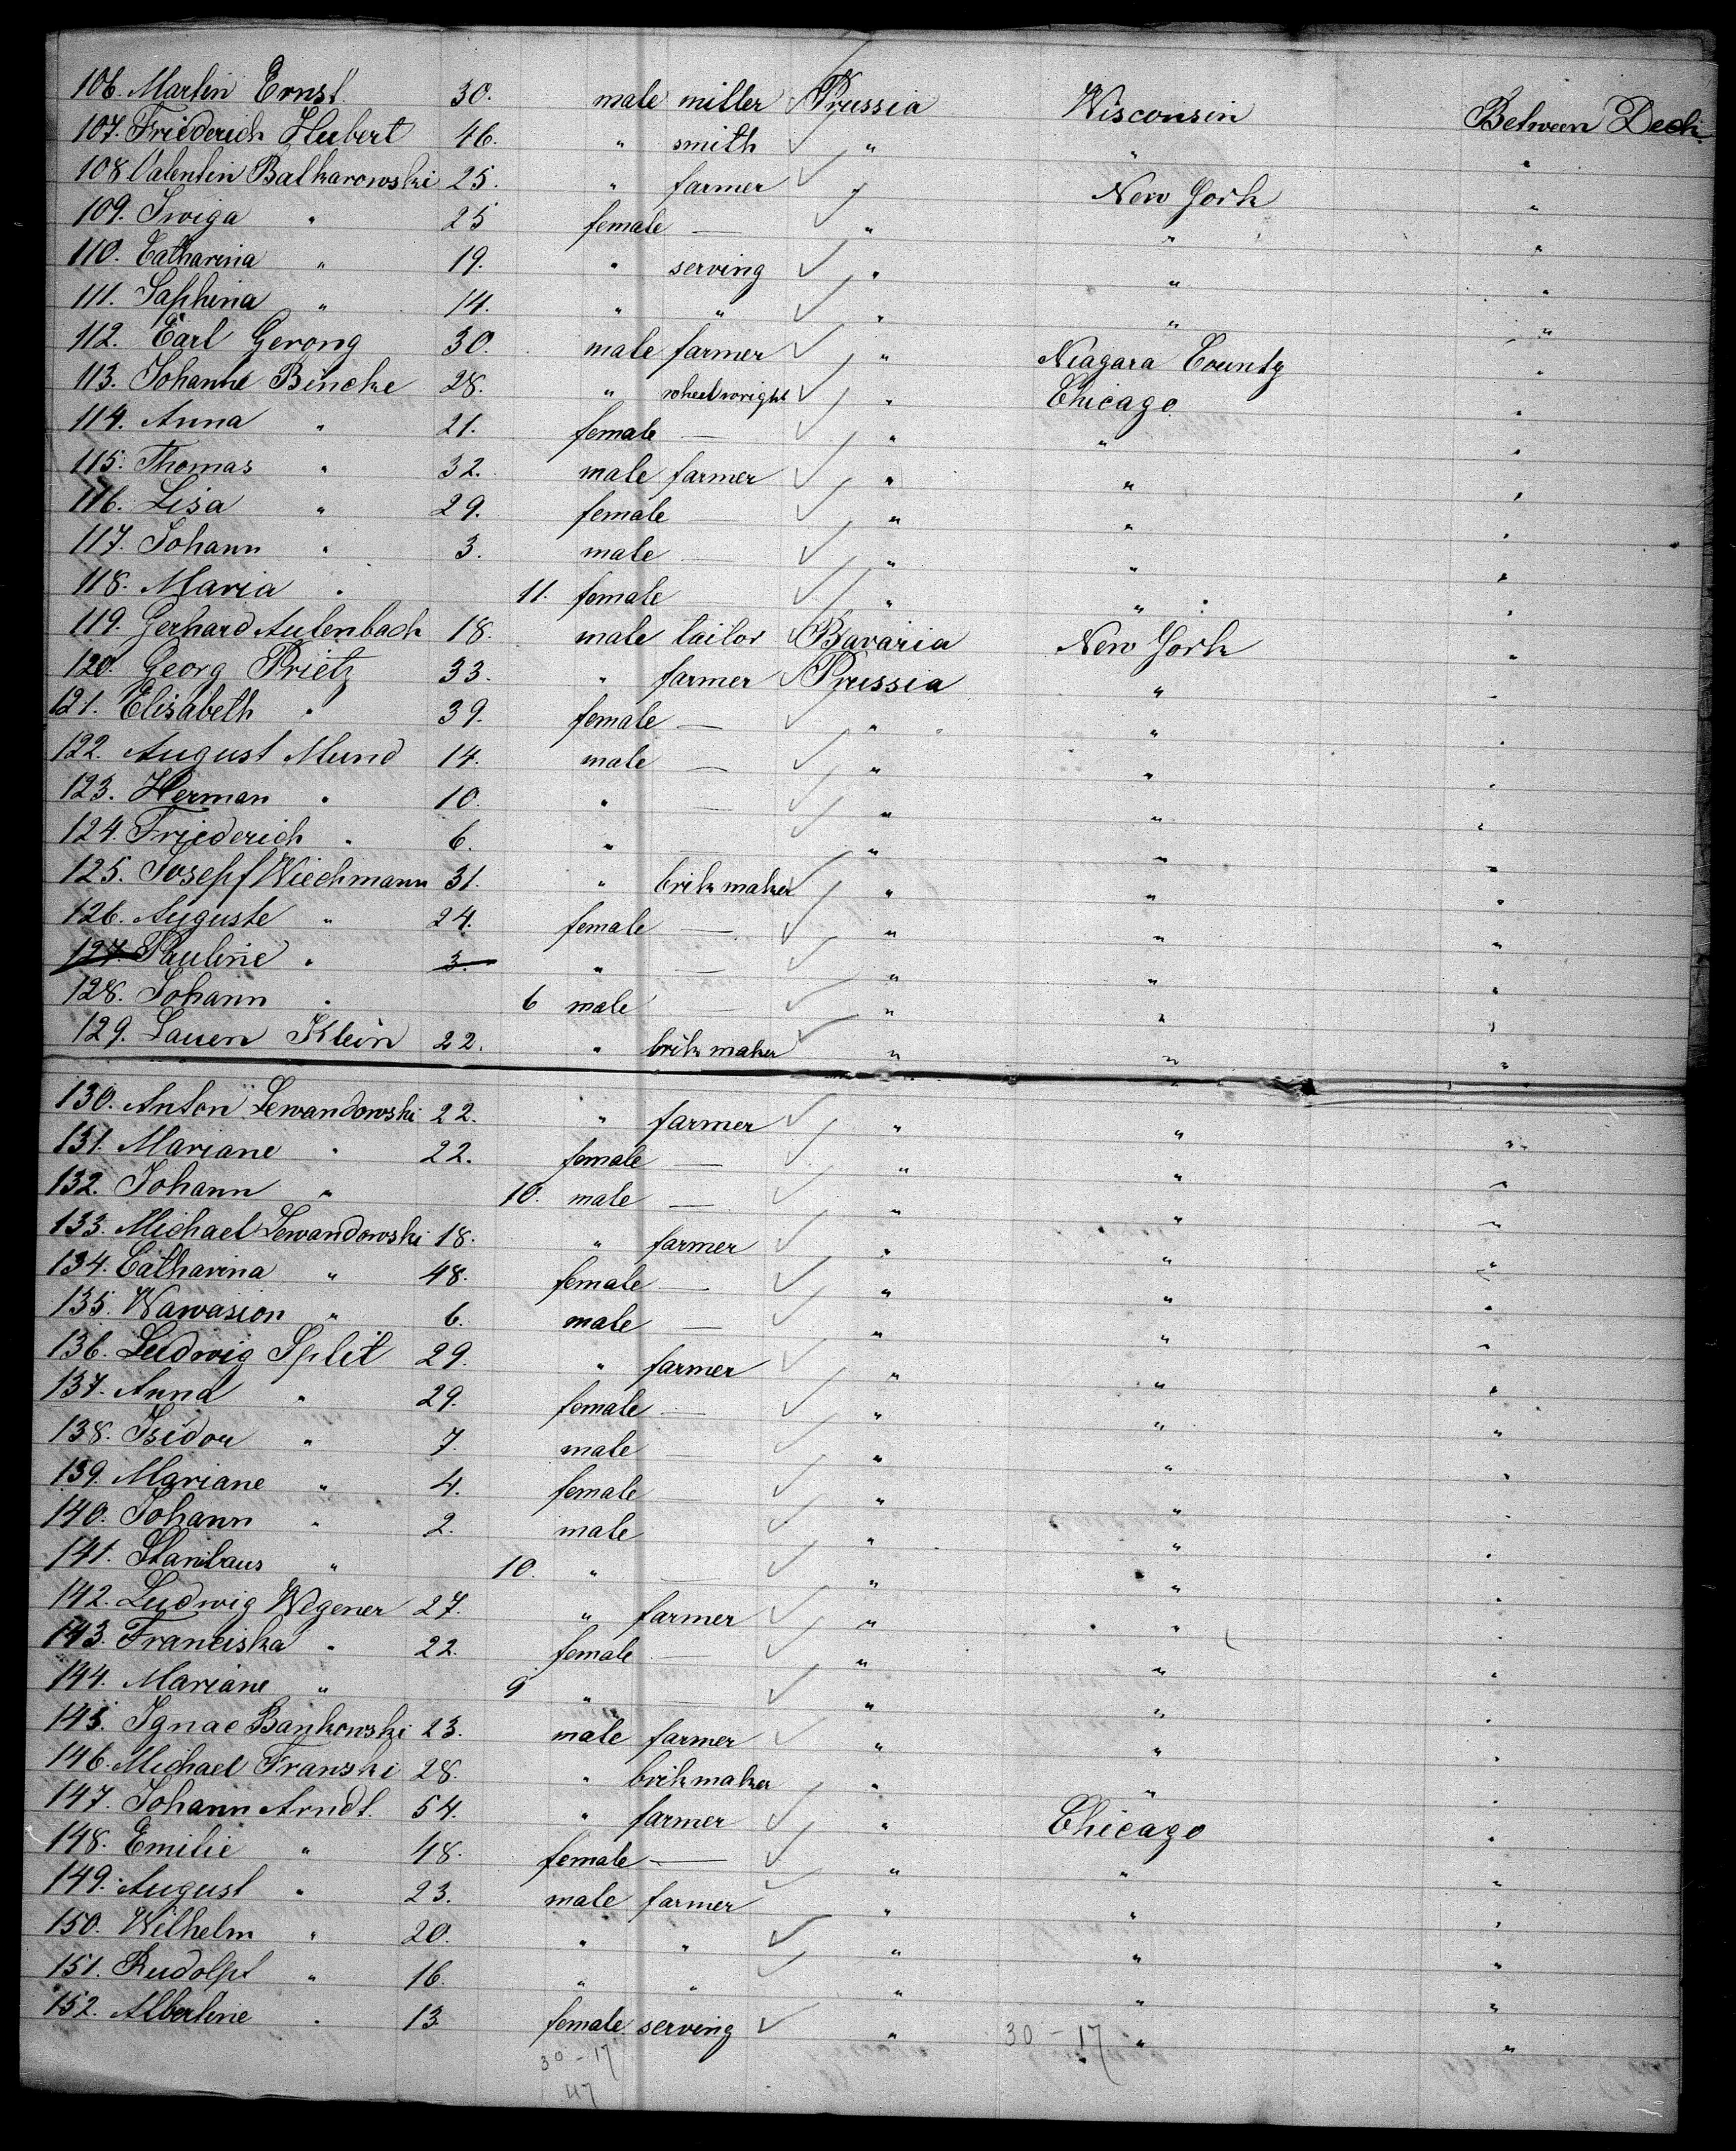 106. Martin Ernst. 30. male miller Prussia Wisconsin Between Deck.
107. Friederich Hubert 46. " smith " " "
108 Valentin Balkarowski 25. " farmer " New York "
109. Iwiga " 25 female — " " "
110. Catharina " 19. " serving " " "
111. Saphina " 14. " " " " "
112. Carl Gerong 30. male farmer " Niagara County "
113. Johanne Bincke 28. " wheelwright " Chicago "
114. Anna " 21. female — " " "
115. Thomas " 32. male farmer " " "
116. Lisa " 29. female — " " "
117. Johann " 3. male — " " "
118. Maria " 11. female " " "
119. Gerhard Aulenbach 18. male tailor Bavaria New York "
120. Georg Prietz 33. " farmer Prussia " "
121. Elisabeth " 39. female — " " "
122. August Mund 14. male — " " "
123. Herman " 10. " — " " "
124. Friederich " 6. " — " " "
125. Josepf Wiechmann 31. " brikmaker " " "
126. Auguste " 24. female — " " "
127. Pauline " 3. " — " " "
128. Johann " 6 male — " " "
129. Lauen Klein 22. " brikmaker " " "
130. Anton Lewandowski 22. " farmer " " "
131. Mariane " 22. female — " " "
132. Johann " 10. male — " " "
133. Michael Lewandowski 18. " farmer " " "
134. Catharina " 48. female — " " "
135. Wawasion " 6. male — " " "
136. Ludwig Split 29. " farmer " " "
137. Anna " 29. female — " " "
138. Isidor " 7. male — " " "
139. Mariane " 4. female — " " "
140. Johann " 2. male " " "
141. Stanilaus " 10. " — " " "
142. Ludwig Wegener 27. " farmer " " "
143. Franciska " 22. female — " " "
144. Mariane " 9 " — " " "
145. Ignac Bankowski 23. male farmer " " "
146. Michael Franski 28. " brikmaker " " "
147. Johann Arndt. 54. " farmer " Chicago "
148. Emilie " 48. female — " " "
149. August " 23. male farmer " " "
150. Wilhelm " 20. " " " " "
151. Rudolpf " 16. " " " " "
152. Albertine " 13 female serving " " "
30 - 17 30 - 17
47